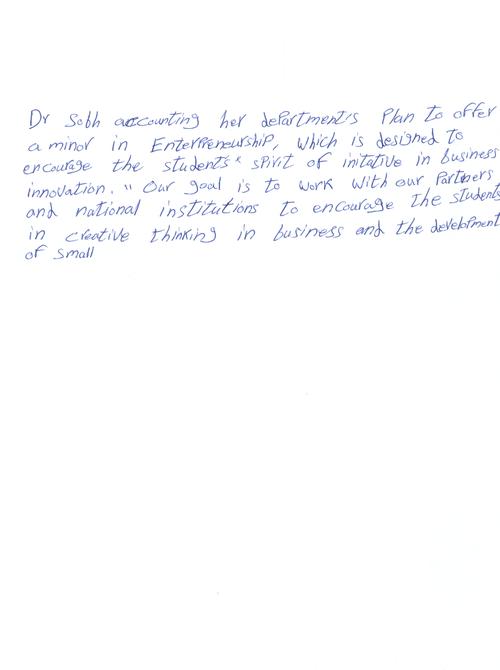 Dr Sobh accounting her department's Plan to offer
a minor in Enterpreneurship, which is designed to
encourage the students" spirit of initative in business
innovation. " Our goal is to work with our Partners
and national institutions to encourage the students
in creative thinking in business and the development
of small